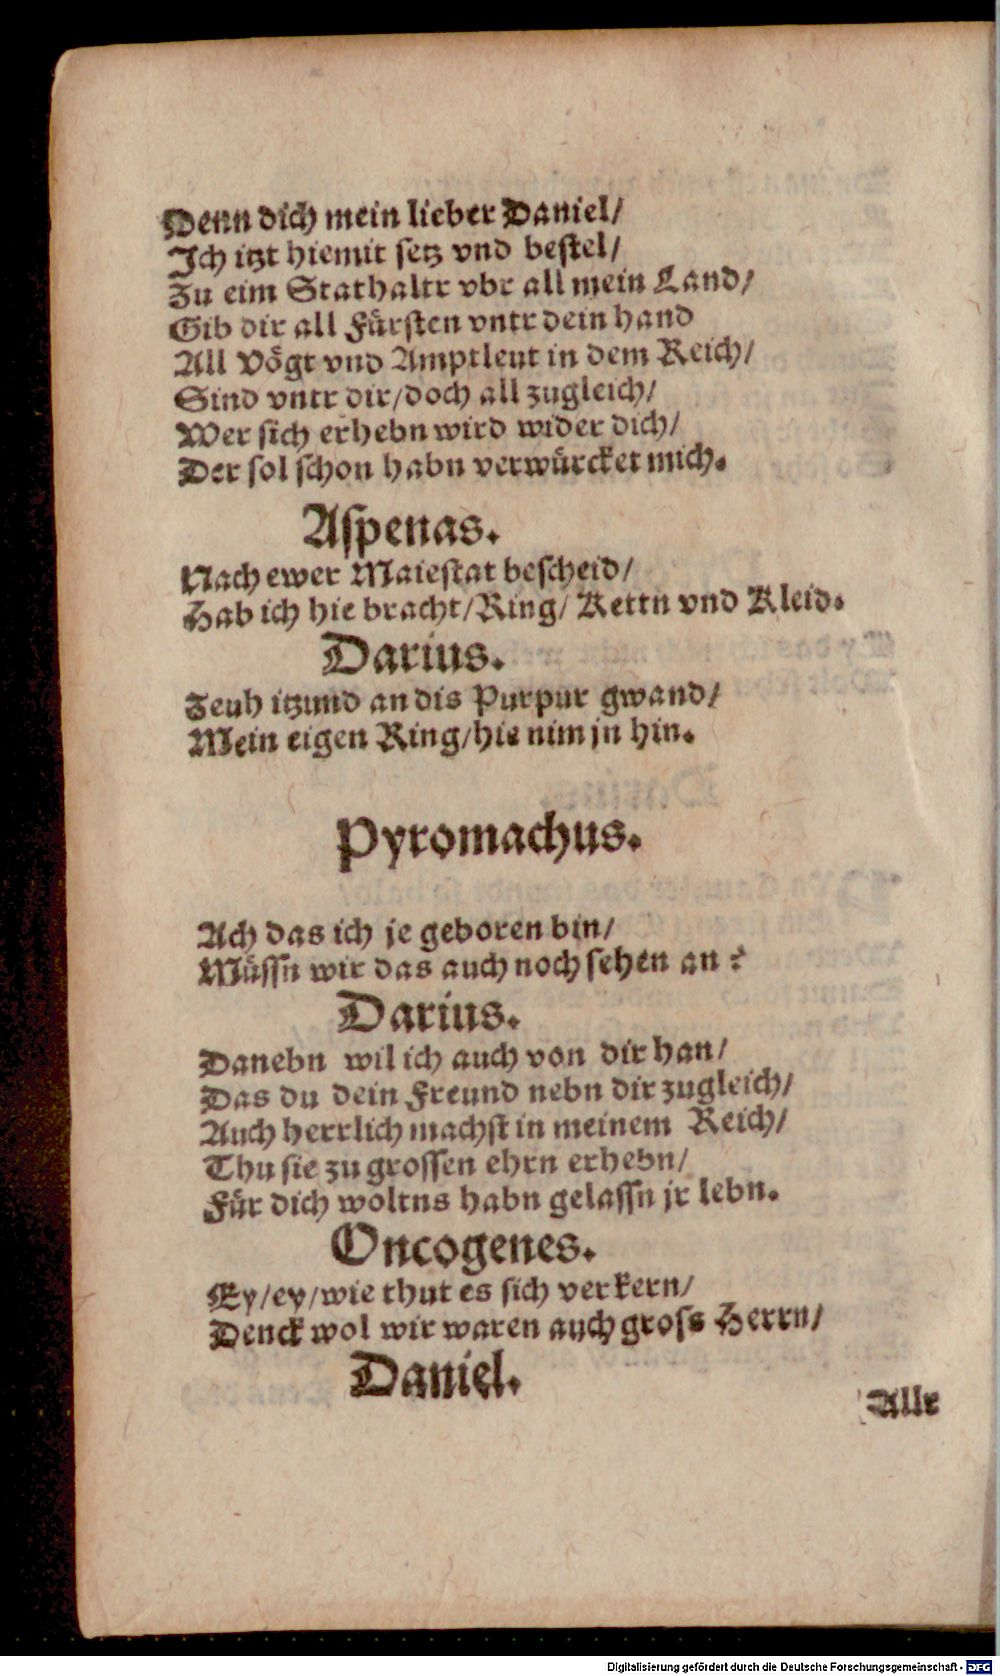 Denn dich mein lieber Daniel/
Ich itzt hiemit setz vnd bestel/
Zu eim Stathaltr vbr all mein Land/
Gib dir all Fürsten vntr dein hand
All Vögt vnd Amptleut in dem Reich/
Sind vntr dir/doch all zugleich/
Wer sich erhebn wird wider dich/
Der sol schon habn verwürcket mich.
Aspenas.
Nach ewer Maiestat bescheid/
Hab ich hie bracht/Ring/ Kettn vnd Kleid.
Darius.
Zeuh itzund an dis Purpur gwand/
Mein eigen Ring/hie nim jn hin.
Pyromachus.
Ach das ich je geboren bin/
Müssn wir das auch noch sehen an?
Darius.
Danebn wil ich auch von dir han/
Das du dein Freund nebn dir zugleich/
Auch herrlich machst in meinem Reich/
Thu sie zu grossen ehrn erhebn/
Für dich woltns habn gelassn jr lebn.
Oncogenes.
Ey/ey/wie thut es sich verkern/
Denck wol wir waren auch gross Herrn/
Daniel.
Allr
Digitalisierung gefördert durch die Deutsche Forschungsgemeinschaft - DFG